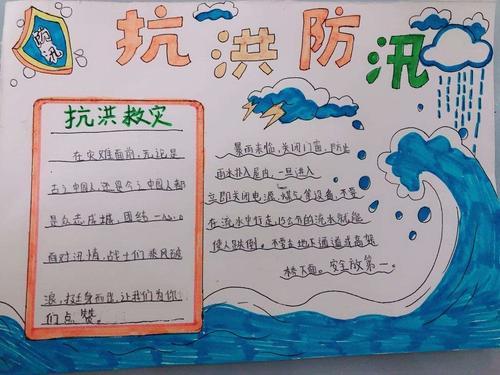 防汛
抗洪防汛
抗洪救灾
在灾难面前，无论是
古之中国人，还是今之中国人都
是众志成城，团结一心。
面对汛情，战士们乘风破
浪，挺身而出，让我们为你
们点赞。
暴雨来临，关闭门窗，防止
雨水扑入屋内，一旦进入
立即关闭电源，煤气等设备，不要
在流水中行走，15公分的流水就能
使人跌倒。不要去地下通道或高架
桥下面。安全放第一。